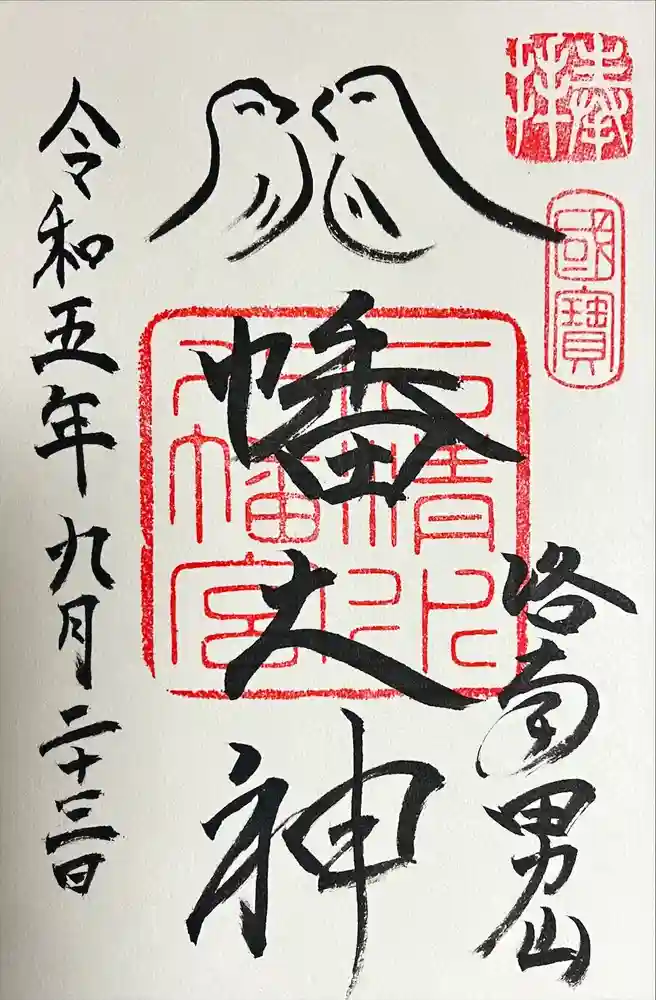 奉拝
國寶
洛南男山
八幡大神
石清水
八幡宮
令和五年九月二十三日